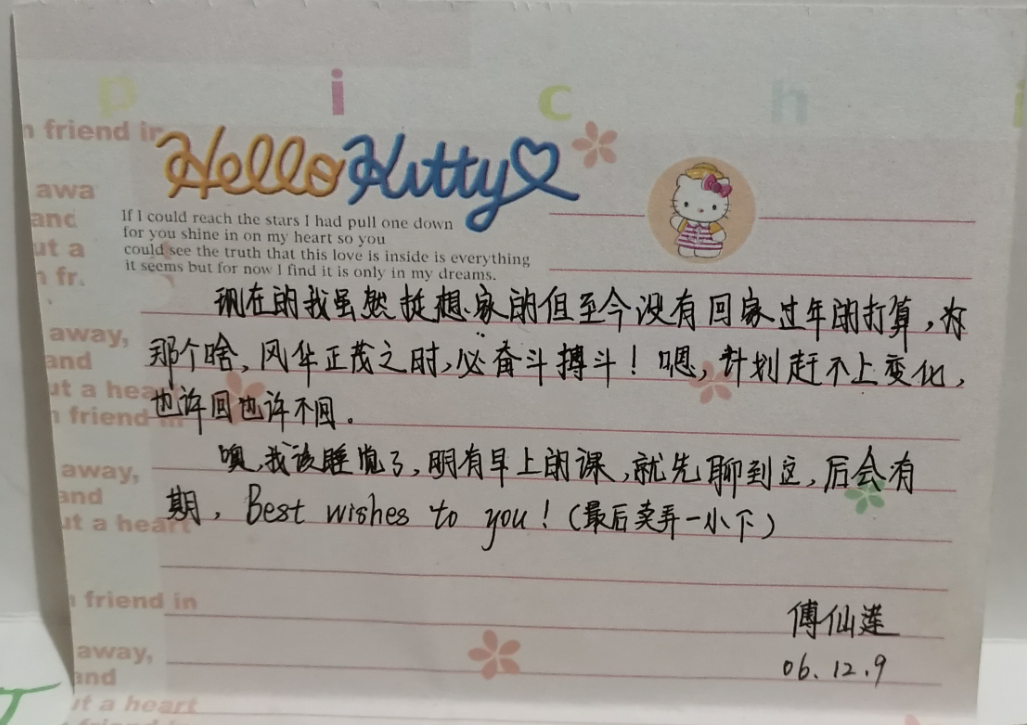 p i c h i
n friend in
Hello Kitty
awa
and
ut a
n fr.
If I could reach the stars I had pull one down
for you shine in on my heart so you
could see the truth that this love is inside is everything
it seems but for now I find it is only in my dreams.
现在的我虽然挺想家的但至今没有回家过年的打算，为
那个啥，风华正茂之时，必奋斗搏斗！嗯，计划赶不上变化，
也许回也许不回。
噢，我该睡觉了，明有早上的课，就先聊到这，后会有
期，Best wishes to you！（最后卖弄一小下）
傅仙莲
06.12.9
away,
and
ut a hea
n friend in
away,
and
ut a heart
n friend in
away,
and
ut a heart
n friend in